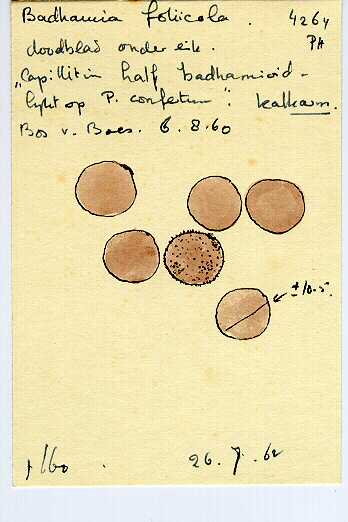 Badhamia foliicola. 4264
PA
doodblad onder eik.
"Capillitium half badhamioid -
lijkt op P. confertum": kalkarm.
Bos v. Baes. 6.8.60
± 10.5.
26.7.62